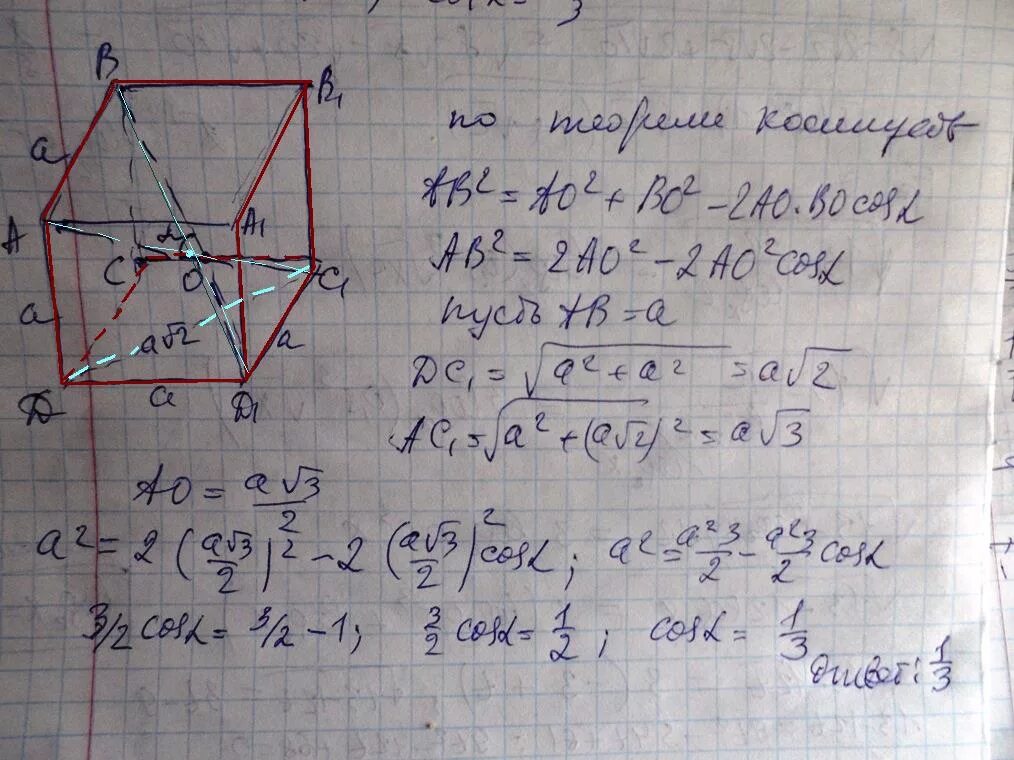 cosα = 3
B
B₁
a
A
A₁
α
C
O
C₁
a
a√2
a
D
a
D₁
по теореме косинусов
AB² = AO² + BO² - 2AO·BO cosα
AB² = 2AO² - 2AO² cosα
пусть AB = a
DC₁ = √(a² + a²) = a√2
AC₁ = √(a² + (a√2)²) = a√3
AO = a√3/2
a² = 2 (a√3/2)² - 2 (a√3/2)² cosα ; a² = a²3/2 - a²3/2 cosα
3/2 cosα = 3/2 - 1 ; 3/2 cosα = 1/2 ; cosα = 1/3
Ответ: 1/3